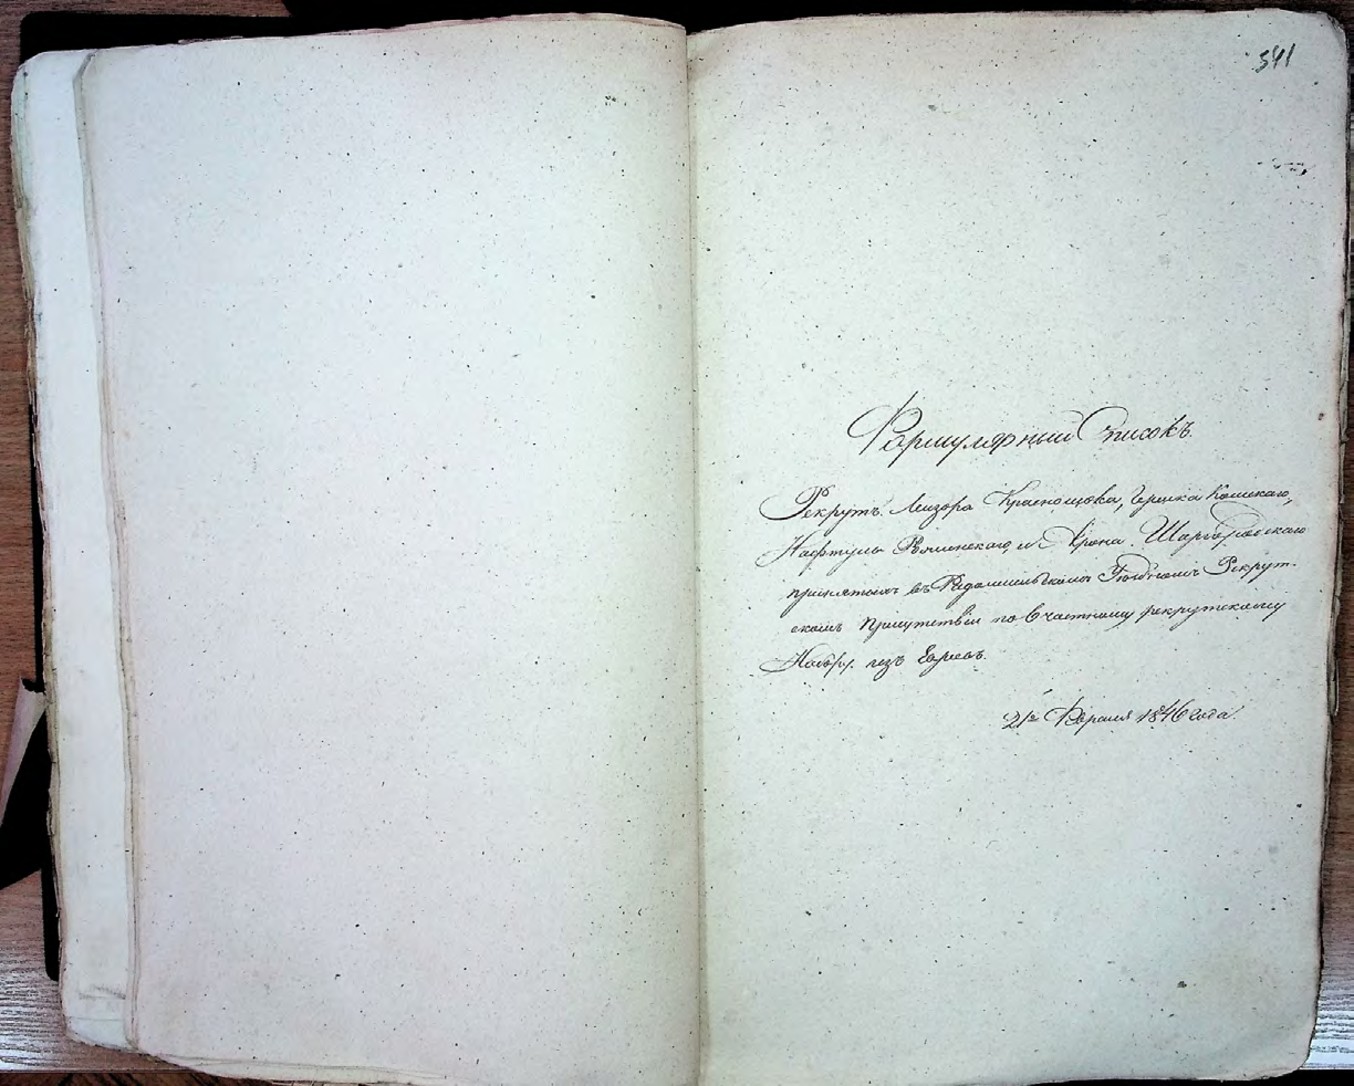 541
Формулярный Списокъ.
Рекрутъ. Лейзора Краснощока, Гершка Кошекаго,
Нафтулы и Арона Шаргородскаго
принятыхъ въ Радомысльскомъ Рекрут-
скомъ присутствіи по частному рекрутскому
Набору изъ Евреевъ.
21го Февраля 1846 года.